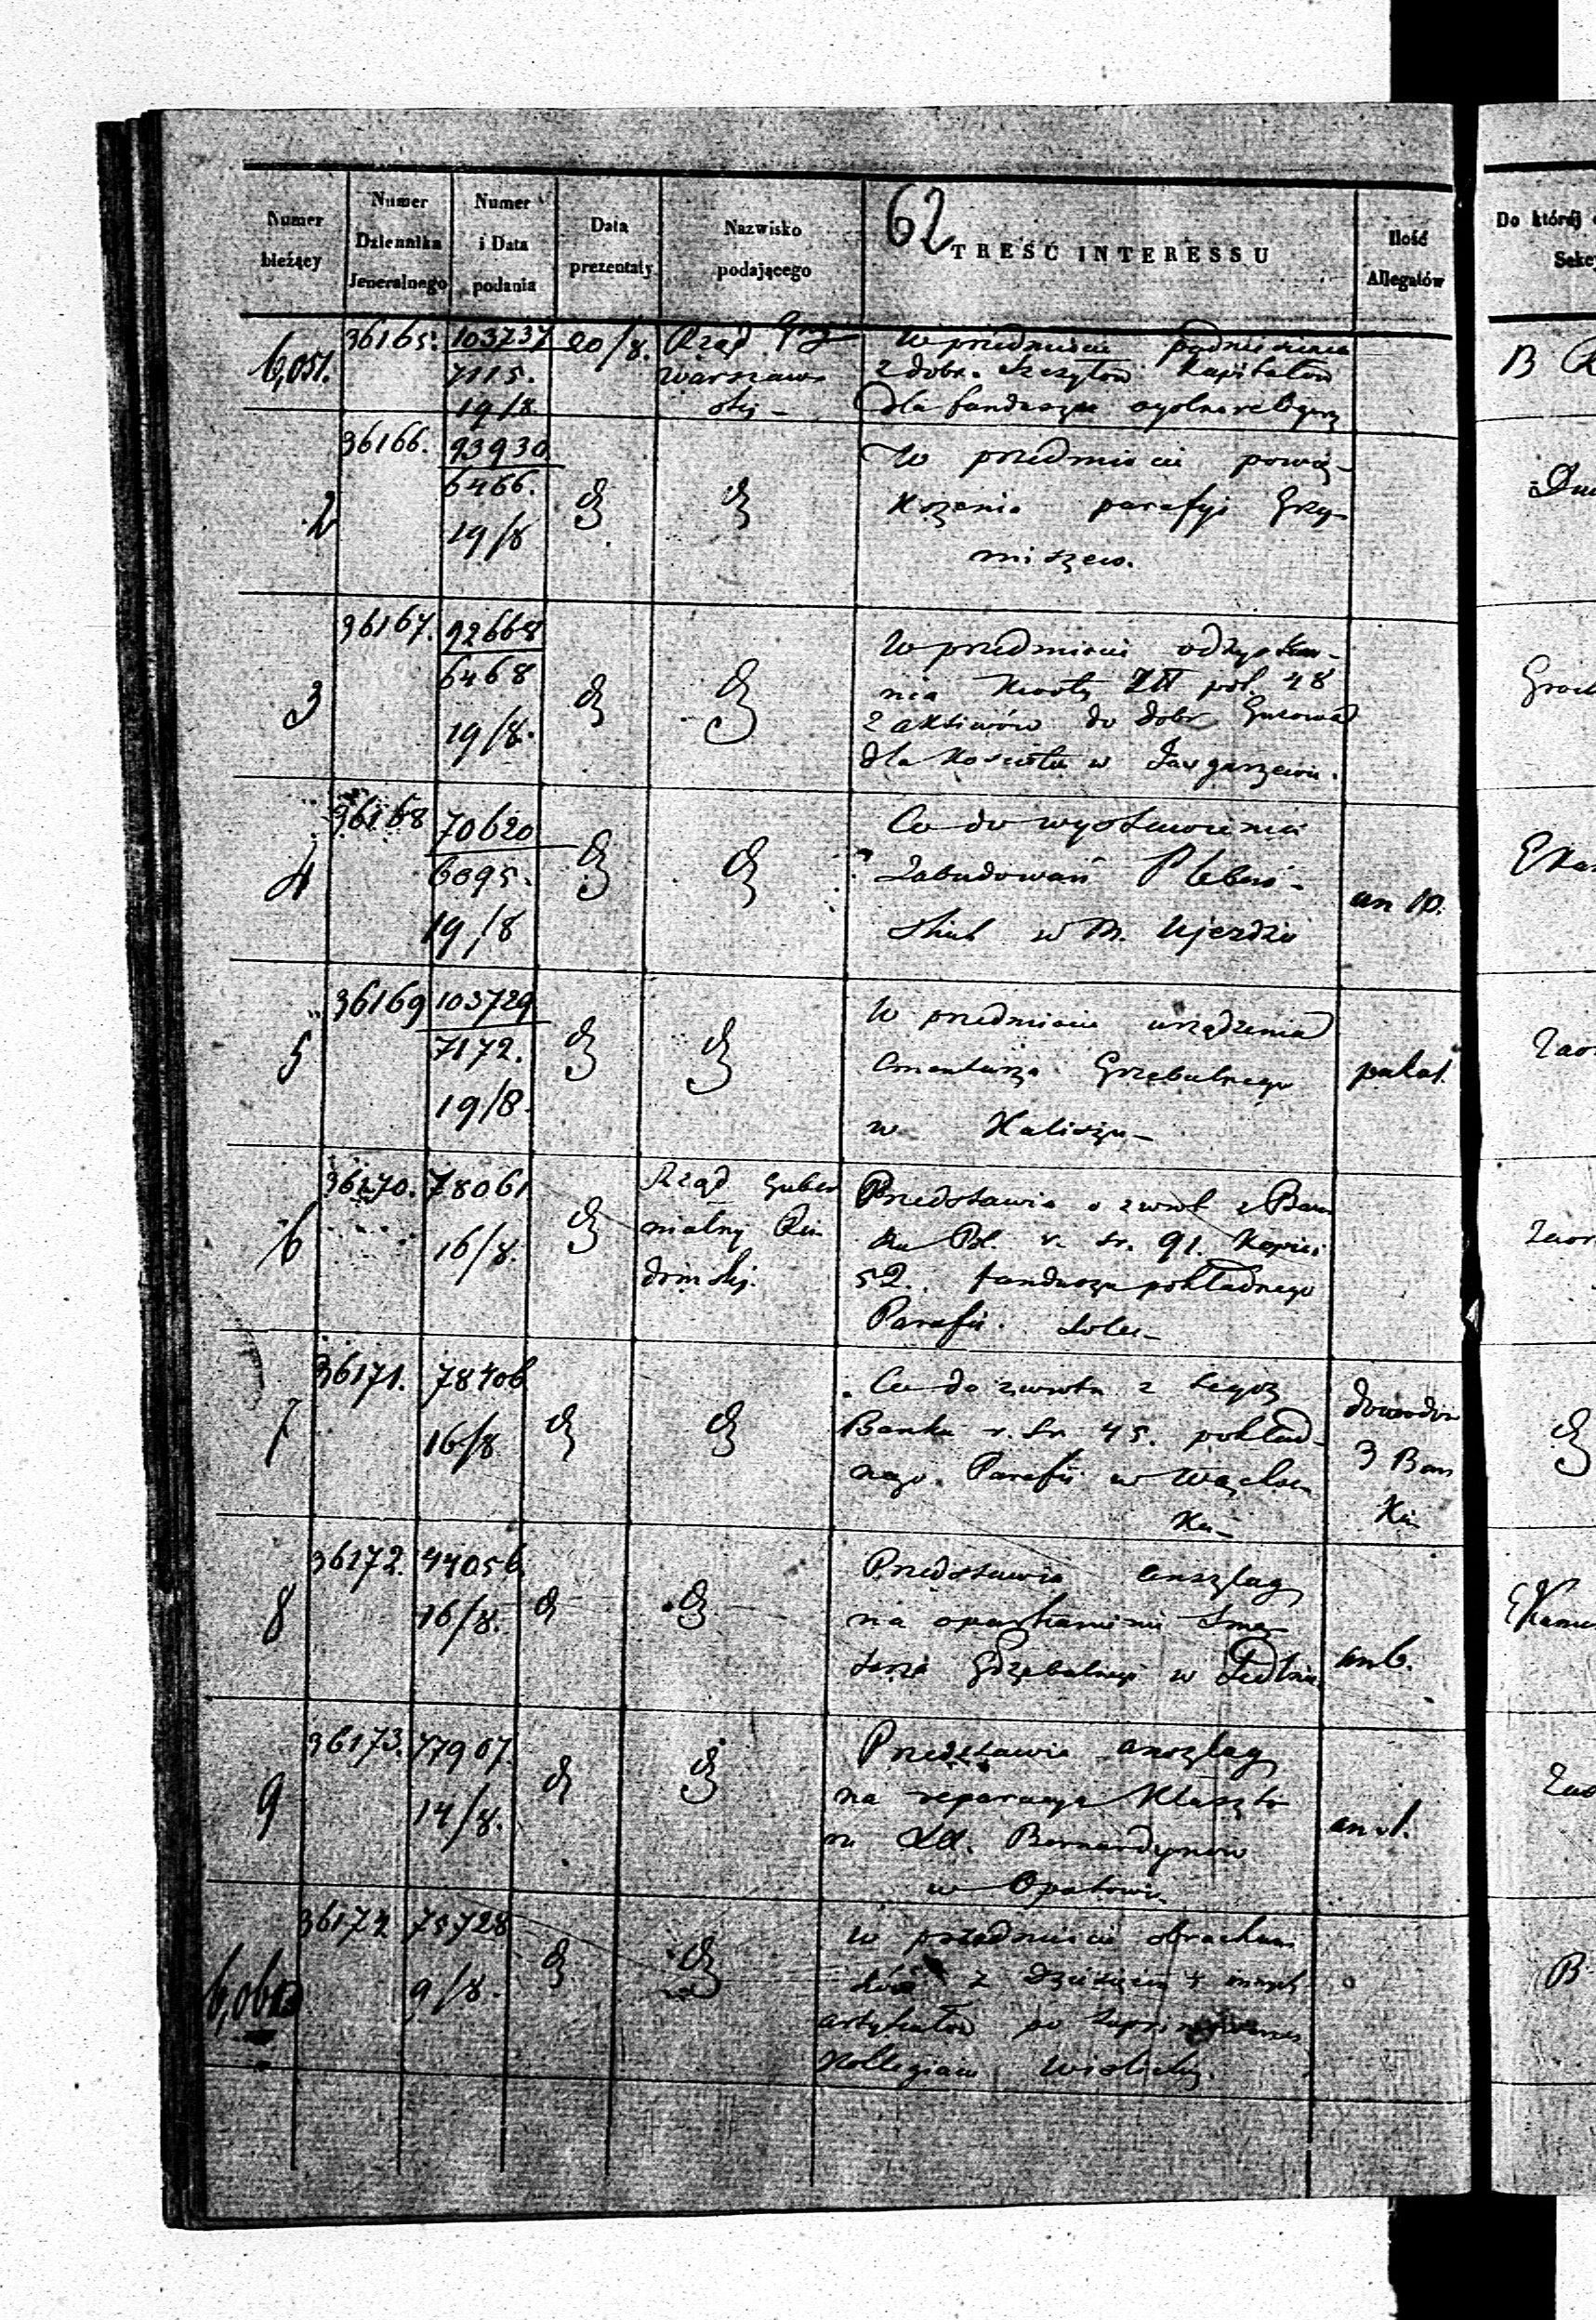 62
Numer bieżący
Numer Dziennika Jeneralnego
Numer i Data podania
Data prezentaty
Nazwisko podającego
TREŚĆ INTERESSU
Ilość Allegatów
Do której
6,051.
36165.
103737
7115.
19/8
20/8.
Rząd
Warszaws
skiej
W przedmiocie podniesienia
z dóbr kapitałów
dla funduszu
B
2
36166.
93930
6466.
19/8
W przedmiocie powię-
kszenia parafji Grzy-
miszew.
3
36167.
92668
6468
19/8.
W przedmiocie odzyska-
nia kwoty Złł pol. 48
z aktiwów do dobr
dla kościoła w
4
36168
70620
6095.
19/8
Co do wystawienia
Zabudowań Plebań-
skich w M. Ujezdzie
an 10.
5
36169
103729
7172.
19/8.
W przedmiocie urządzenia
Cmentarza Grzebalnego
w Kaliszu
pakat.
6
36170.
78061
16/8.
Rząd Guber
nialny Ra
domski.
Przedstawia o zwrot z Ban
ku Pol. r. sr. 91. kopiei
52. funduszu pokładnego
Parafii Solec
7
36171.
78406
16/8
Co do zwrotu z tegoż
Banku r. sr. 45. pokład-
nego Parafii w Wąchoc
ku
dowodów
3 Ban
ku
8
36172.
44056
16/8.
Przedstawia anszlag
na oparkanienie Smę-
tarza Grzebalnego w
an 6.
9
36173.
77907.
14/8.
Przedstawia anszlag
na reparacyą Klaszto
ru XX. Bernardynów
w Opatowie
an 1.
36174
75728
9/8.
W przedmiocie obrachun
ków z Dziesięcin i innych
artykułów po
Kollegiacie Wislickiej.
B